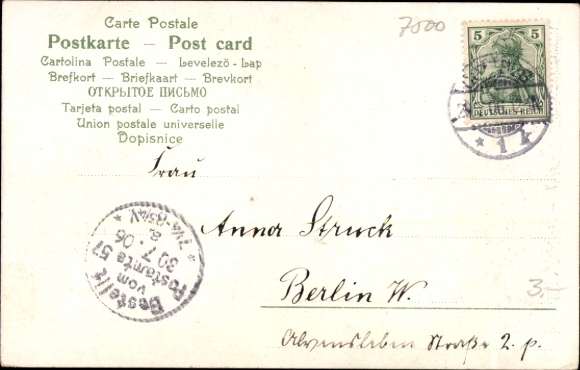 Carte Postale
Postkarte — Post card
Cartolina Postale — Levelező-Lap
Brefkort — Briefkaart — Brevkort
ОТКРЫТОЕ ПИСЬМО
Tarjeta postal — Carto postal
Union postale universelle
Dopisnice
7500
5 5
DEUTSCHES REICH
* 1 k
Frau
Anna Struck
Berlin W.
Alvensleben Straße 2. p.
3.-
Bestellt
vom
Postamte 57
30.7.06
7¼-8¾V.